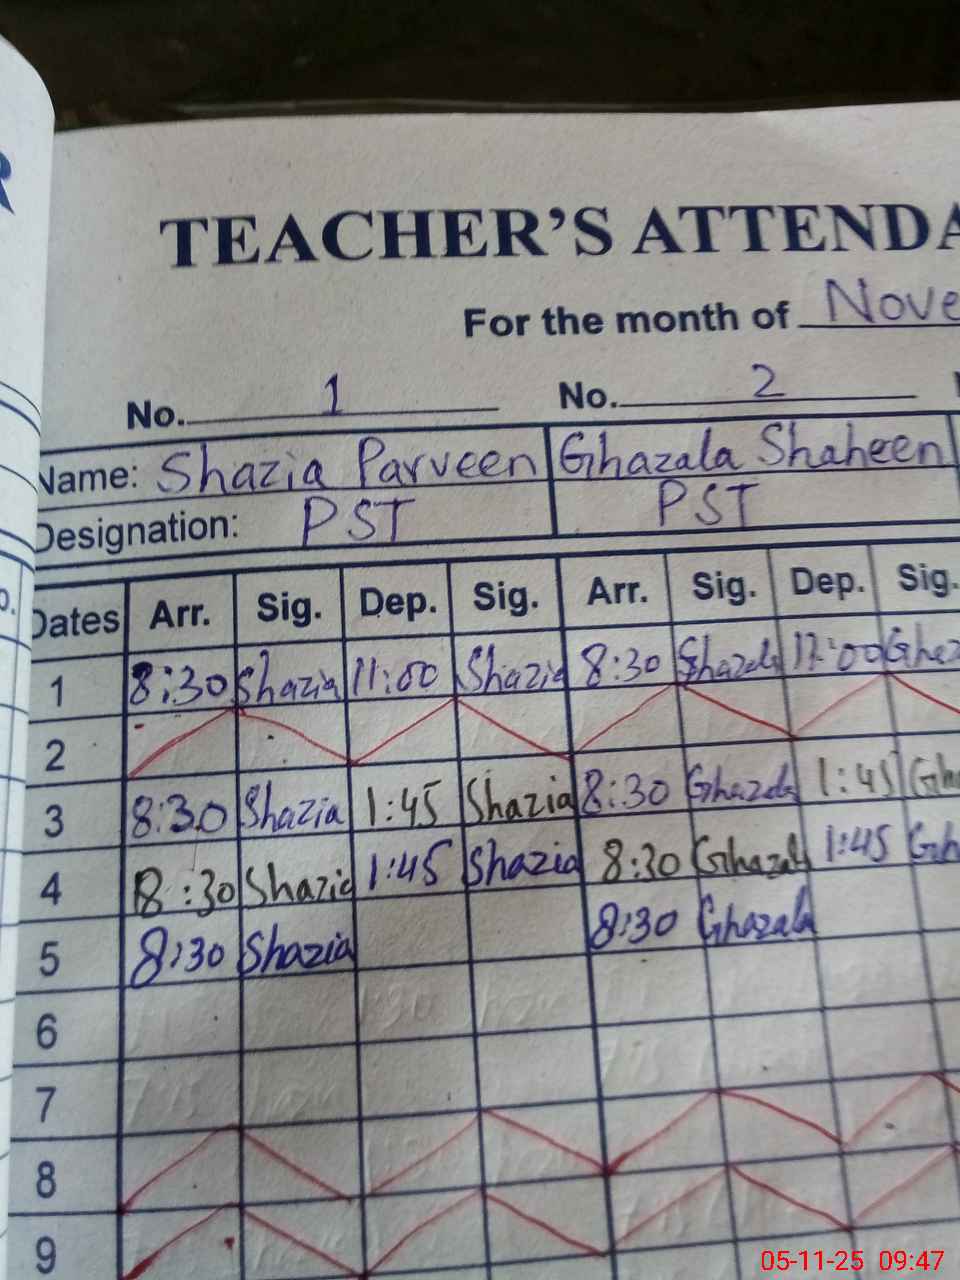 R
TEACHER'S ATTENDA
For the month of Nove
No. 1 No. 2
Name: Shazia Parveen Ghazala Shaheen
Designation: PST PST
Dates Arr. Sig. Dep. Sig. Arr. Sig. Dep. Sig.
1 8:30 Shazia 11:00 Shazia 8:30 Ghazala Ghaz
2
3 8:30 Shazia 1:45 Shazia 8:30 Ghazala 1:45 Gha
4 8:30 Shazia 1:45 Shazia 8:30 Ghazala 1:45 Gh
5 8:30 Shazia 8:30 Ghazala
6
7
8
9
05-11-25 09:47